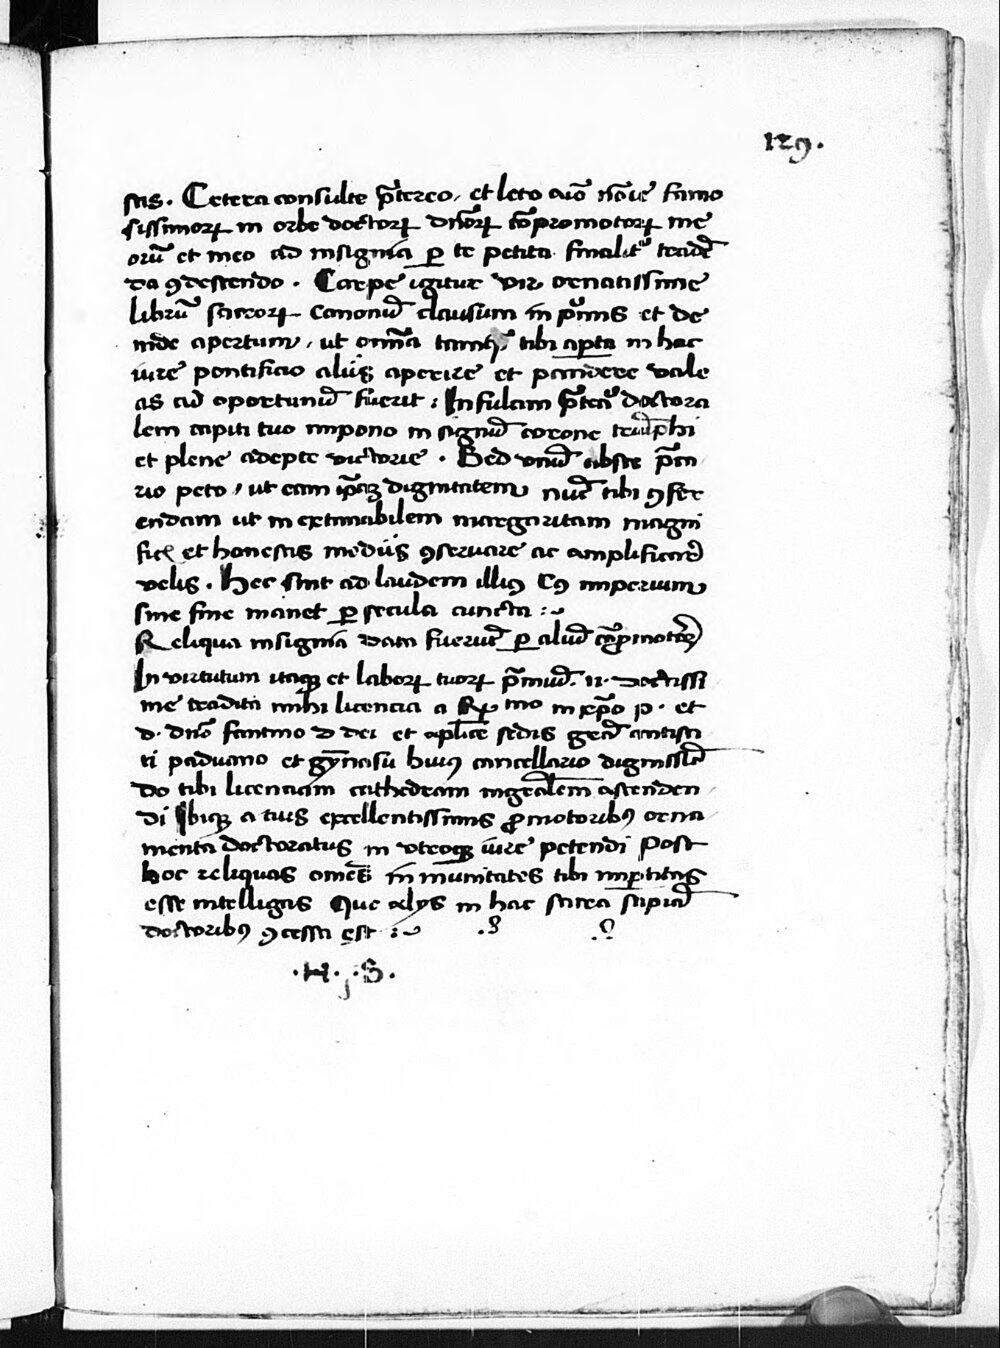 129.
stis. Cetera consulte p̄tereo, et leto aīo nōīe famo
sissimorꝝ in orbe doctorꝝ dn̄orꝝ cōpromotorꝝ me
orū et meo ad insignia ꝑ te petita finalitᵉʳ tradē
da ꝯdescendo. Carpe igitur vir ornatissime
librū sacrorꝝ canonū clausum in p̄mis et de
inde apertum, ut om̄ia tamꝙ̄ tibi aperta in hac
iure pontificio alijs aperire et pandere vale
as cū oportunū fuerit: Infulam p̄terea doctora
lem capiti tuo impono in signū corone triūphi
et plene adepte victorie. Sed unū abste p̄ma
rio peto, ut eam ip̄aꝫ dignitatem nūc tibi ꝯfer
endam ut inextimabilem margaritam magni
ficꝭ et honestis medijs ꝯservare ac amplificare
velis. Hec sint ad laudem illiꝰ Cꝰ imperium
sine fine manet ꝑ secula cuncta:~
Reliqua insignia data fuerūt ꝑ aliū cōpromotorē
In virtutum itaqꝫ et laborꝝ tuorꝝ p̄miū. n. doctissi
me tradita mihi licencia a Rͫᵒ in xp̄o p. et
d. dn̄o fantino d dei et aplīce sedis grā antisti
ti paduano et gȳnasij huiꝰ cancellario dignissīo
do tibi licenciam cathedram magrālem ascenden
di Ibiqꝫ a tuis excellentissimis ꝓmotoribꝰ orna
menta doctoratus in utroqꝫ iure petendi Post
hoc reliquas om̄es inmunitates tibi imꝑtitas
esse intelligas Que alijs in hac sacra sapiā
doctoribꝰ ꝯcessa est:~
.H. j .S.